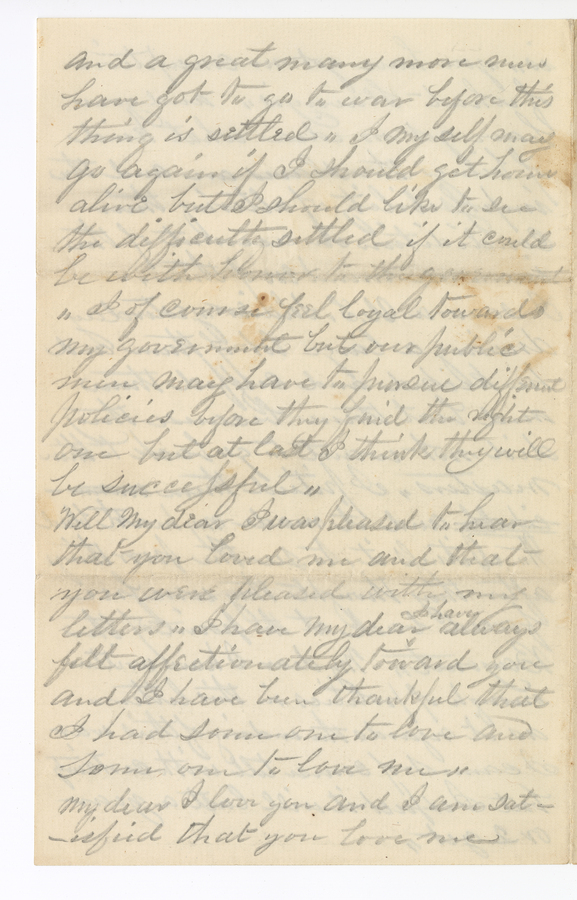 and a great many more men
have got to go to war before this
thing is settled " I my self may
go again if I should get home
alive but I should like to see
the difficulty settled if it could
be with honor to the government
" I of course feel loyal towards
my government but our public
men may have to pursue different
policies before they find the right
one but at last I think they will
be successful "
Well My dear I was pleased to hear
that you loved me and that
you were pleased with my
letters " I have my dear I have always
felt affectionately toward you
and I have been thankful that
I had some one to love and
some one to love me "
my dear I love you and I am sat-
-isfied that you love me